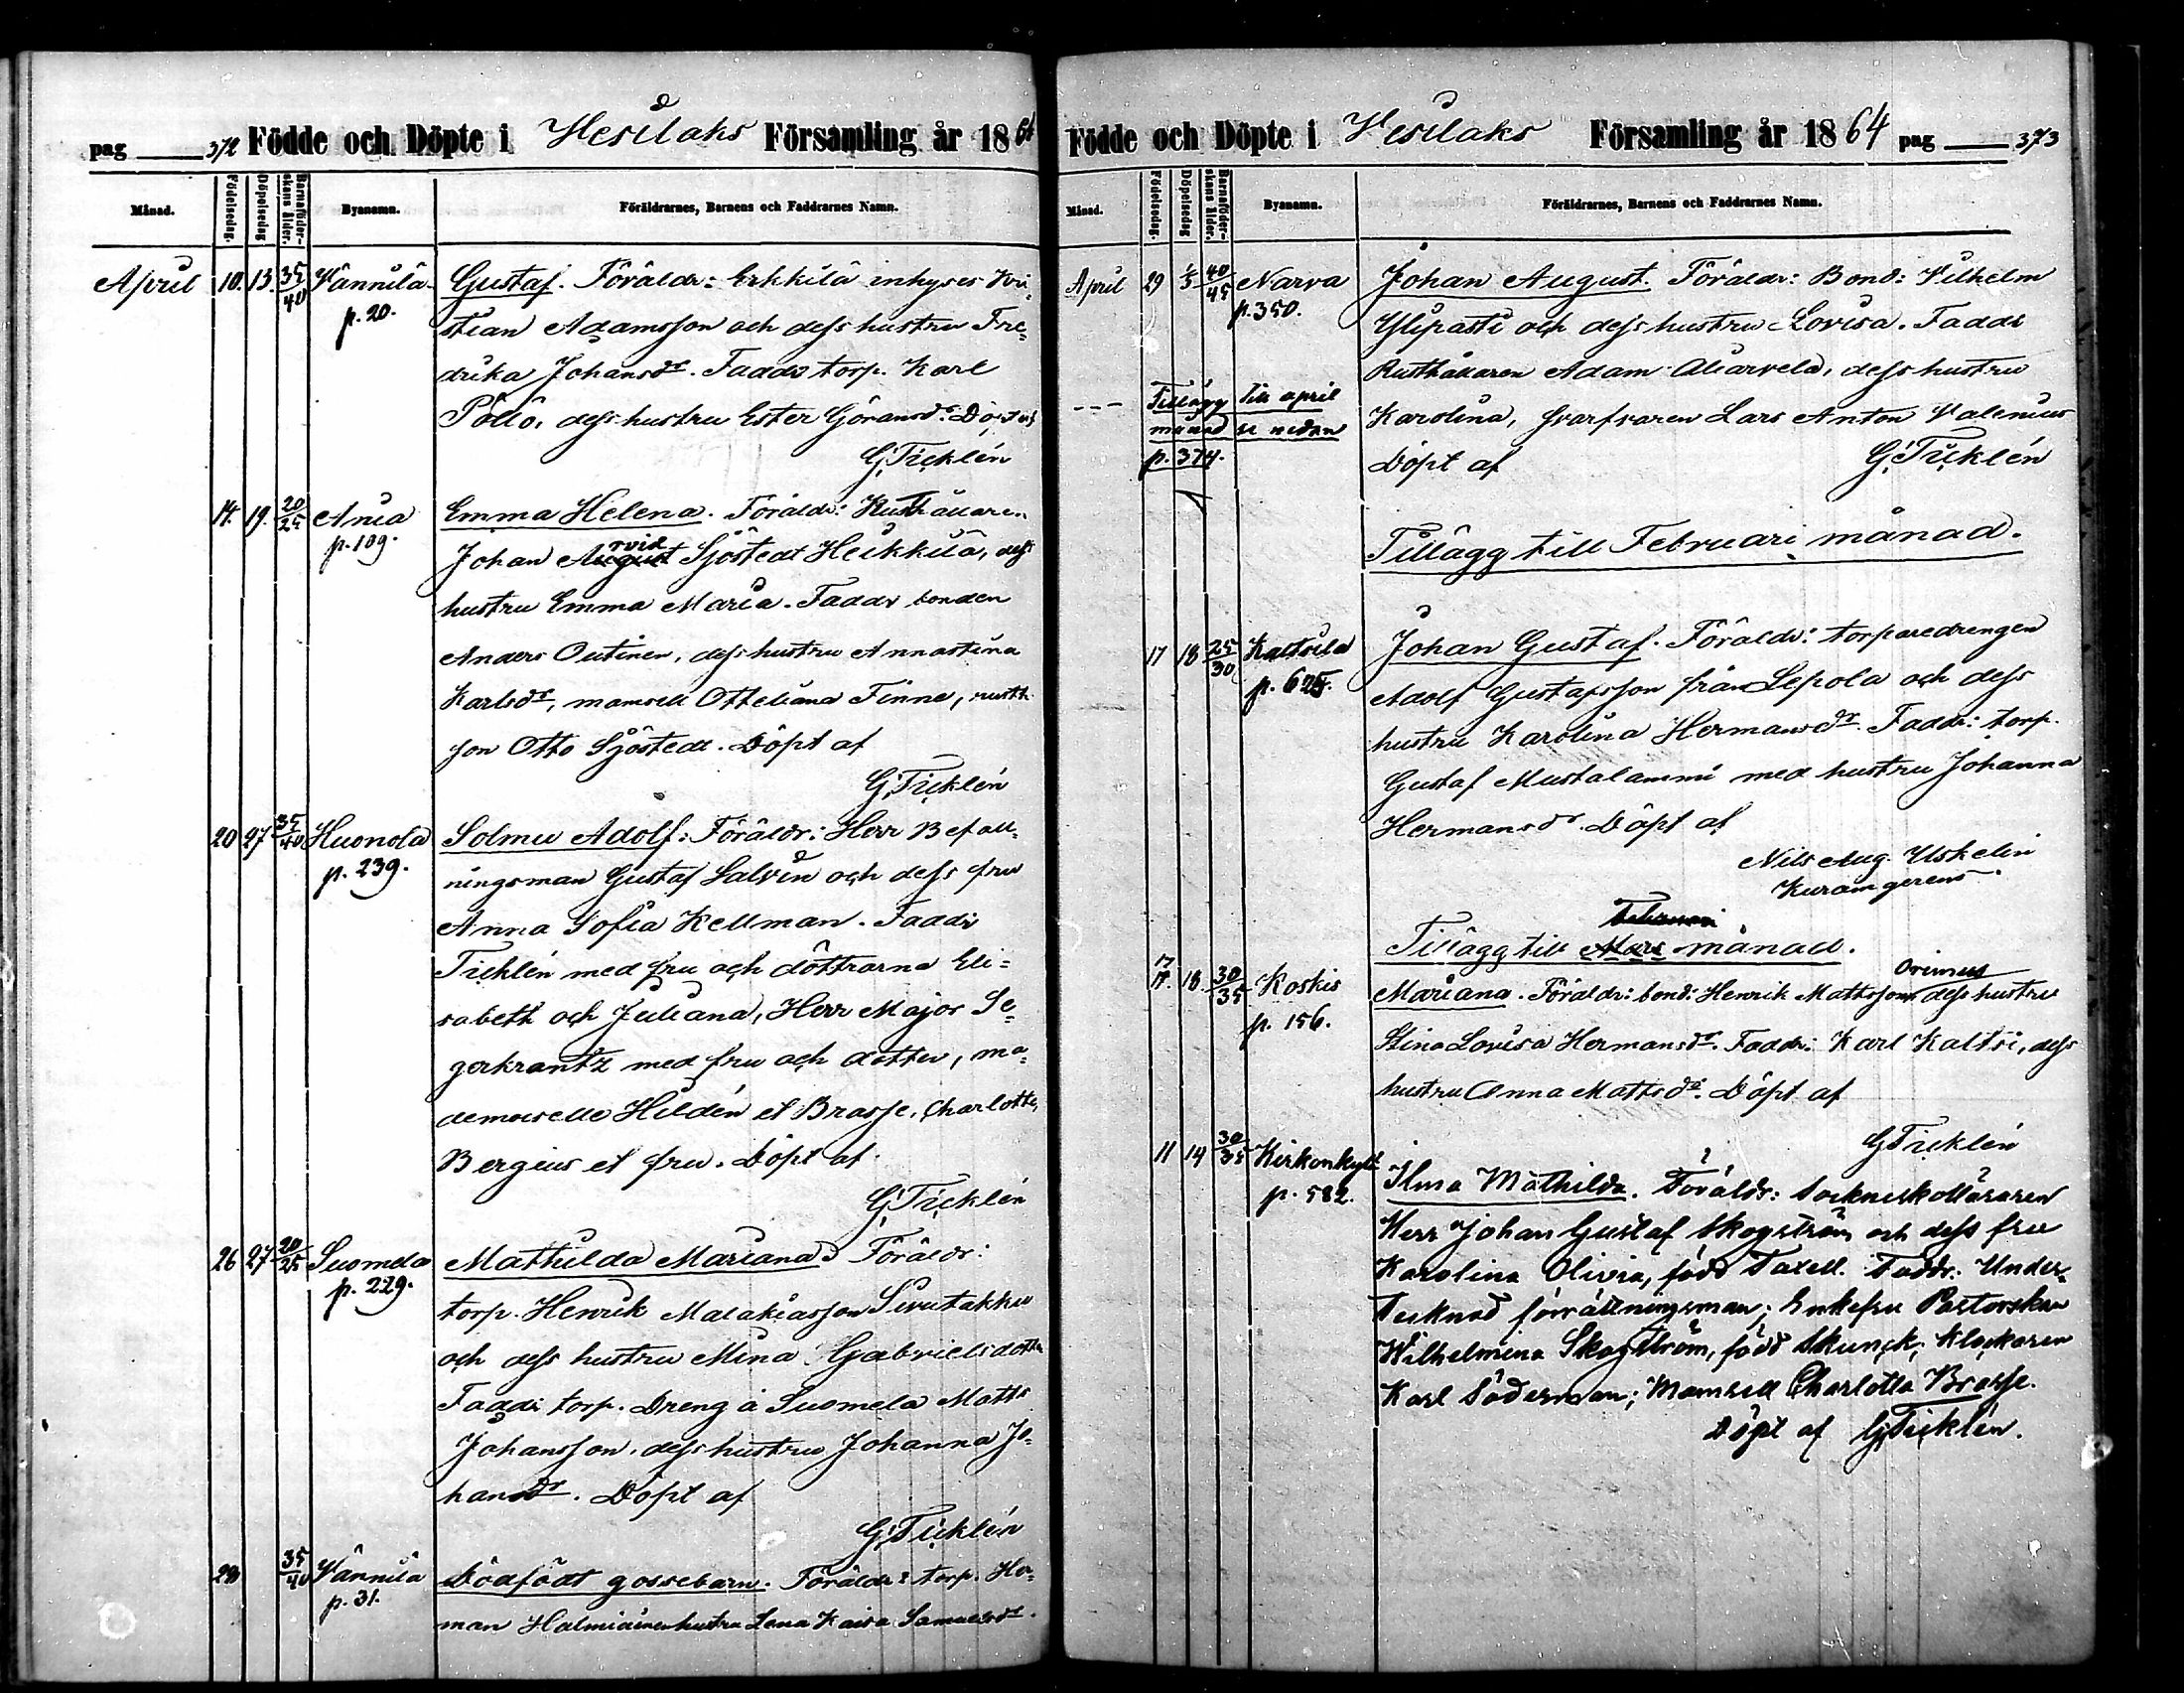 pag 372 Födde och Döpte i Vesilaks Församling år 1864
Månad. Födelsedag. Döpelsedag Barnaföderskans ålder. Byanamn. Föräldrarnes, Barnens och Faddrarnes Namn.
April 10. 13. 35/40 Vännilä Gustaf. Föräldr: Erkkilä inhyses Kri-
p. 20. stian Adamsson och dess hustru Fre-
drika Johansdr. Faddr torp. Karl
Pöllö, dess hustru Ester Göransdr. Döpt af
G. Ticklén
14. 19. 20/25 Ania Emma Helena. Föräldr: Rusthållaren
p. 109. rvid
Johan August Sjöstedt Heikkilä, dess
hustru Emma Maria. Faddr bonden
Anders Outinen, dess hustru Annastina
Karlsdr, mamsell Otteliana Finne, rusth.
son Otto Sjöstedt. Döpt af
G. Ticklén
20 27 35/40 Huonola Solmu Adolf. Föräldr: Herr Befall-
p. 239. ningsman Gustaf Salvin och dess fru
Anna Sofia Kellman. Faddr
Ticklén med fru och döttrarna Eli-
sabeth och Juliana, Herr Major Se-
gerkrantz med fru och dotter, ma-
demoiselle Hildén et Brasse, Charlotte,
Bergius et fru. Döpt af
G. Ticklén
26 27 20/25 Suomela Mathilda Mariana. Föräldr:
p. 229. torp. Henrik Malakiasson Sivutakku
och dess hustru Mina Gabrielsdotter
Faddr torp. Dreng å Suomela Matts
Johansson, dess hustru Johanna Jo-
hansdr. Döpt af
G. Ticklén
35/40 Vännilä Dödfödt gossebarn. Föräldr: torp. Her-
p. 31. man Halmiainen hustru Lena Kaisa Samuelsdr.
Födde och Döpte i Vesilaks Församling år 1864 pag 373
Månad. Födelsedag. Döpelsedag Barnaföderskans ålder. Byanamn. Föräldrarnes, Barnens och Faddrarnes Namn.
April 29 1/5 40/45 Narva Johan August. Föräldr: Bond: Vilhelm
p. 350. Ylipasti och dess hustru Lovisa. Faddr
Rusthållaren Adam Aliarvela, dess hustru
--- Tillägg till april
månad se nedan
p. 374.
Karolina, Garfvaren Lars Anton Valenius
Döpt af G. Ticklén
Tillägg till Februari månad.
17 18 25/30 Kaltsila Johan Gustaf. Föräldr: torparedrengen
p. 625. Adolf Gustafsson från Lepola och dess
hustru Karolina Hermansdr. Faddr: torp.
Gustaf Mustalammi med hustru Johanna
Hermansdr. Döpt af
Nils Aug. Uskelin
Kuram gerens.
Februari
Tillägg till Mars månad.
17
17. 18. 30/35 Koskis Mariana. Föräldr: bond: Henrik Mattsson Orimus dess hustru
p. 156. Stina Lovisa Hermansdr. Faddr: Karl Kaltsi, dess
hustru Anna Mattsdr. Döpt af
G Ticklén
11 14 30/35 Kirkonkylä Ilma Mathilda. Föräldr: Sockneskolläraren
p. 582. Herr Johan Gustaf Skogström och dess fru
Karolina Olivia, född Taxell. Faddr: Under-
tecknad förrättningsman; Enkefru Pastorskan
Wilhelmina Skogström, född Skunck; Klockaren
Karl Söderman; Mamsell Charlotta Brasse.
Döpt af G. Ticklén.